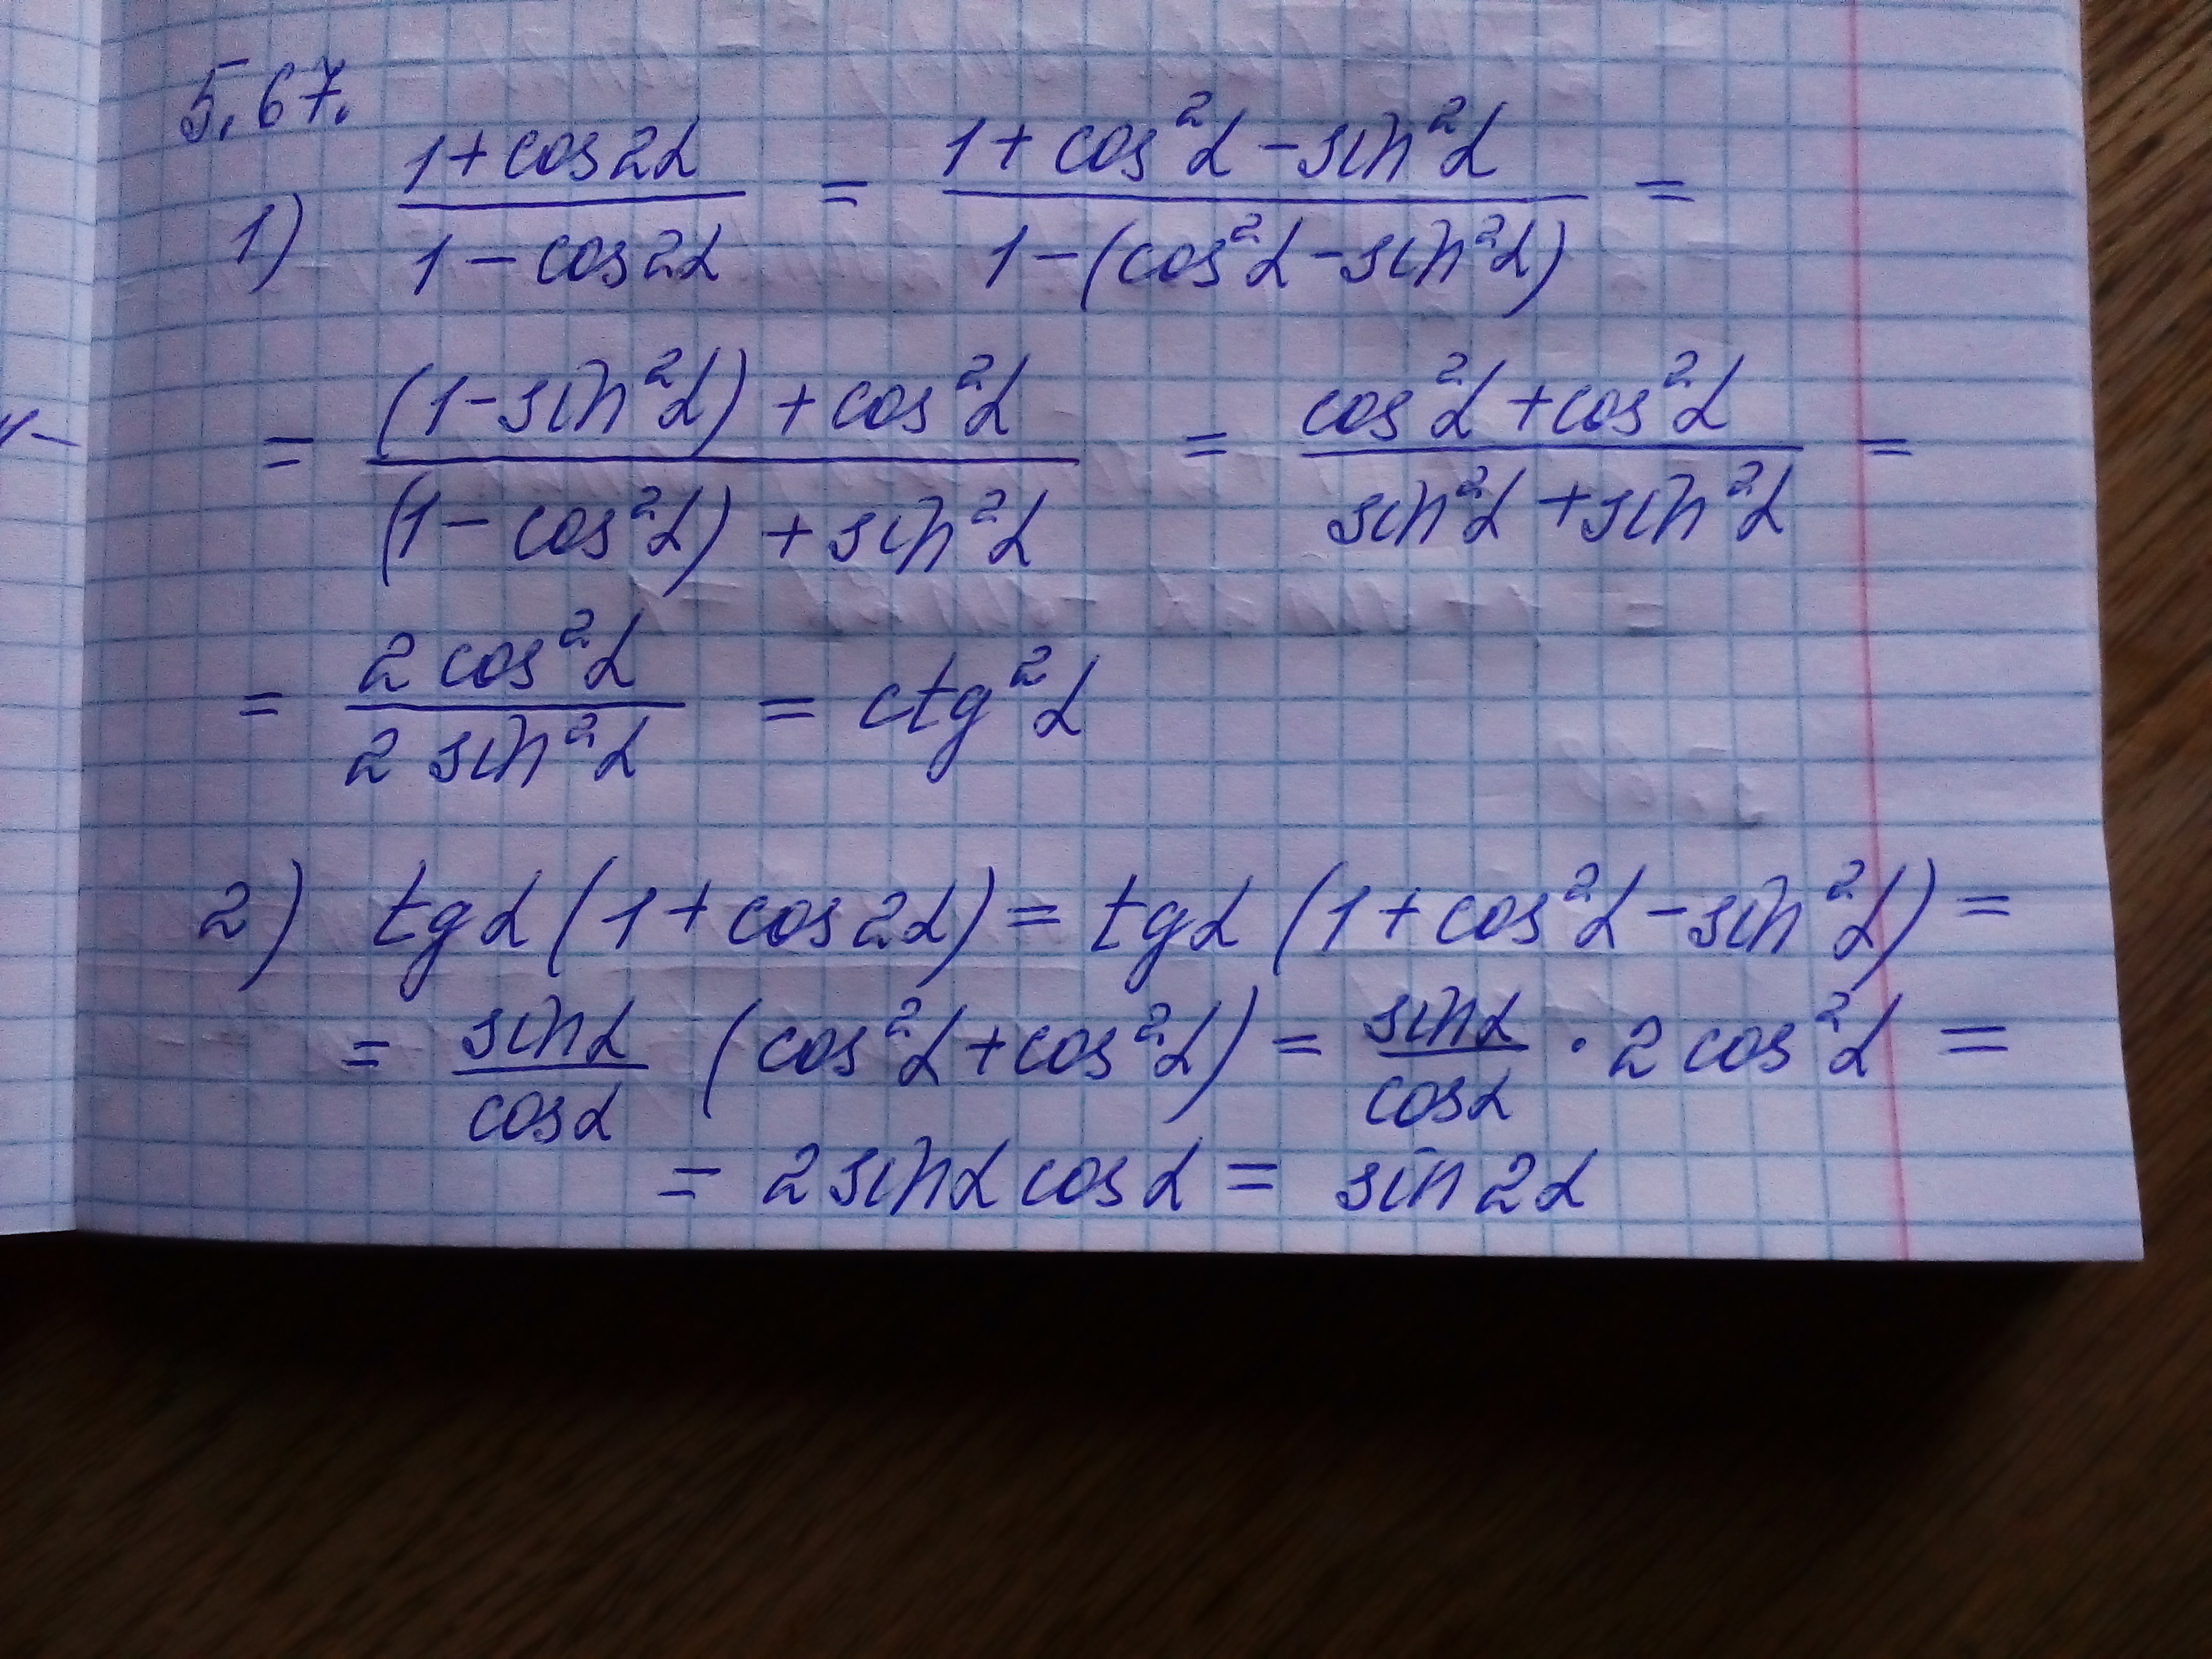 5.67.
1) (1+cos2α)/(1-cos2α) = (1+cos²α-sin²α)/(1-(cos²α-sin²α)) =
= ((1-sin²α)+cos²α)/((1-cos²α)+sin²α) = (cos²α+cos²α)/(sin²α+sin²α) =
= (2cos²α)/(2sin²α) = ctg²α
2) tgα(1+cos2α) = tgα(1+cos²α-sin²α) =
= sinα/cosα (cos²α+cos²α) = sinα/cosα · 2cos²α =
= 2sinα cosα = sin2α